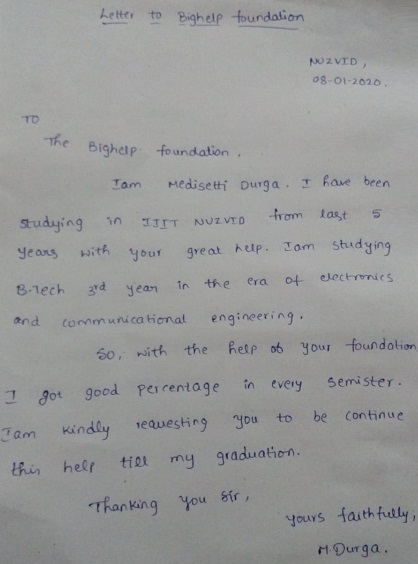 Letter to Bighelp foundation
NUZVID,
08-01-2020.
TO
The Bighelp foundation.
Iam Medisetti Durga. I have been
studying in IIIT NUZVID from last 5
years with your great help. Iam studying
B.Tech 3rd year in the era of electronics
and communicational engineering.
So, with the help of your foundation
I got good percentage in every semister.
Iam kindly requesting you to be continue
this help till my graduation.
Thanking you sir,
yours faithfully,
M.Durga.